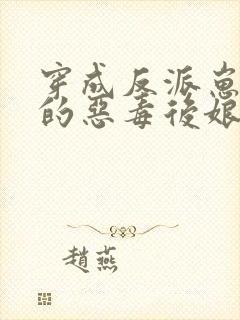 穿成反派崽
的惡毒後娘
趙燕